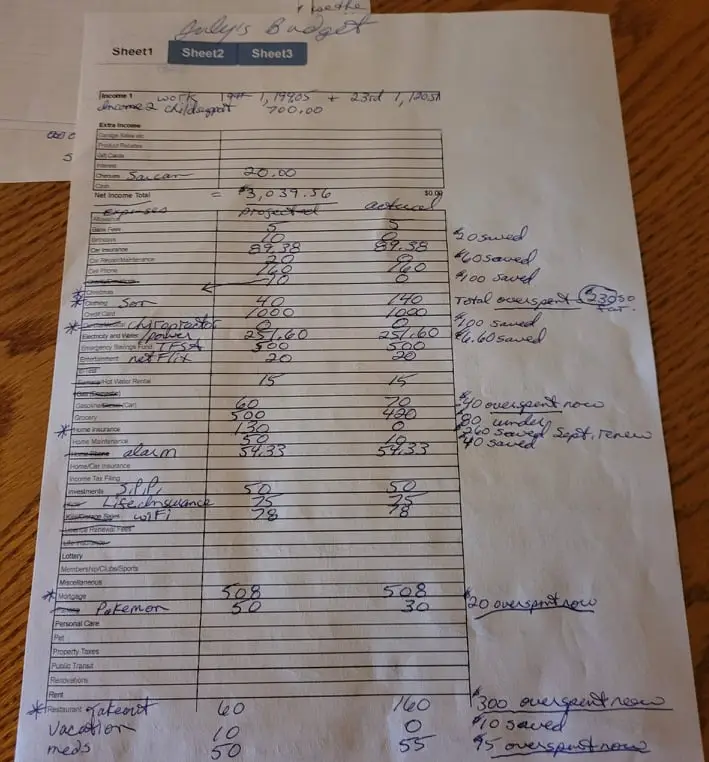 July's Budget
Sheet1 Sheet2 Sheet3
Income 1 work 1,199.05 + 23rd 1,120.51
Income 2 child support 700.00
Extra Income
Garage Sales etc
Product Rebates
Gift Cards
Interest
Cheques 20.00
Cash
Net Income Total = $3,039.56 $0.00
Expenses projected actual
Allowance
Bank Fees 5 5
Birthdays 10 0 $20 saved
Car Insurance 89.38 89.38
Car Repair/Maintenance 20 0 $60 saved
Cell Phone 160 160
10 0 $100 saved
Christmas
* Clothing Son 40 140 Total overspent $230 so far.
Credit Card 1000 1000
* chiropractor 0 0 $100 saved
Electricity and Water/power 251.60 251.60 $6.60 saved
Emergency Savings Fund TFSA 500 500
Entertainment netflix 20 20
Hot Water Rental 15 15
Gasoline (Car) 60 70 $40 overspent now
Grocery 500 420 $80 under
* Home Insurance 130 0 $260 saved Sept. renew
Home Maintenance 50 10 $40 saved
Home Phone alarm 54.33 54.33
Home/Car Insurance
Income Tax Filing
Investments S.P.P. 50 50
Life Insurance 75 75
wifi 78 78
License Renewal Fees
Life Insurance
Lottery
Membership/Clubs/Sports
Miscellaneous
* Mortgage 508 508
Pokemon 50 30 $20 overspent now
Personal Care
Pet
Property Taxes
Public Transit
Renovations
Rent
* Restaurant Takeout 60 160 $300 overspent now
Vacation 10 0 $10 saved
meds 50 55 overspent now